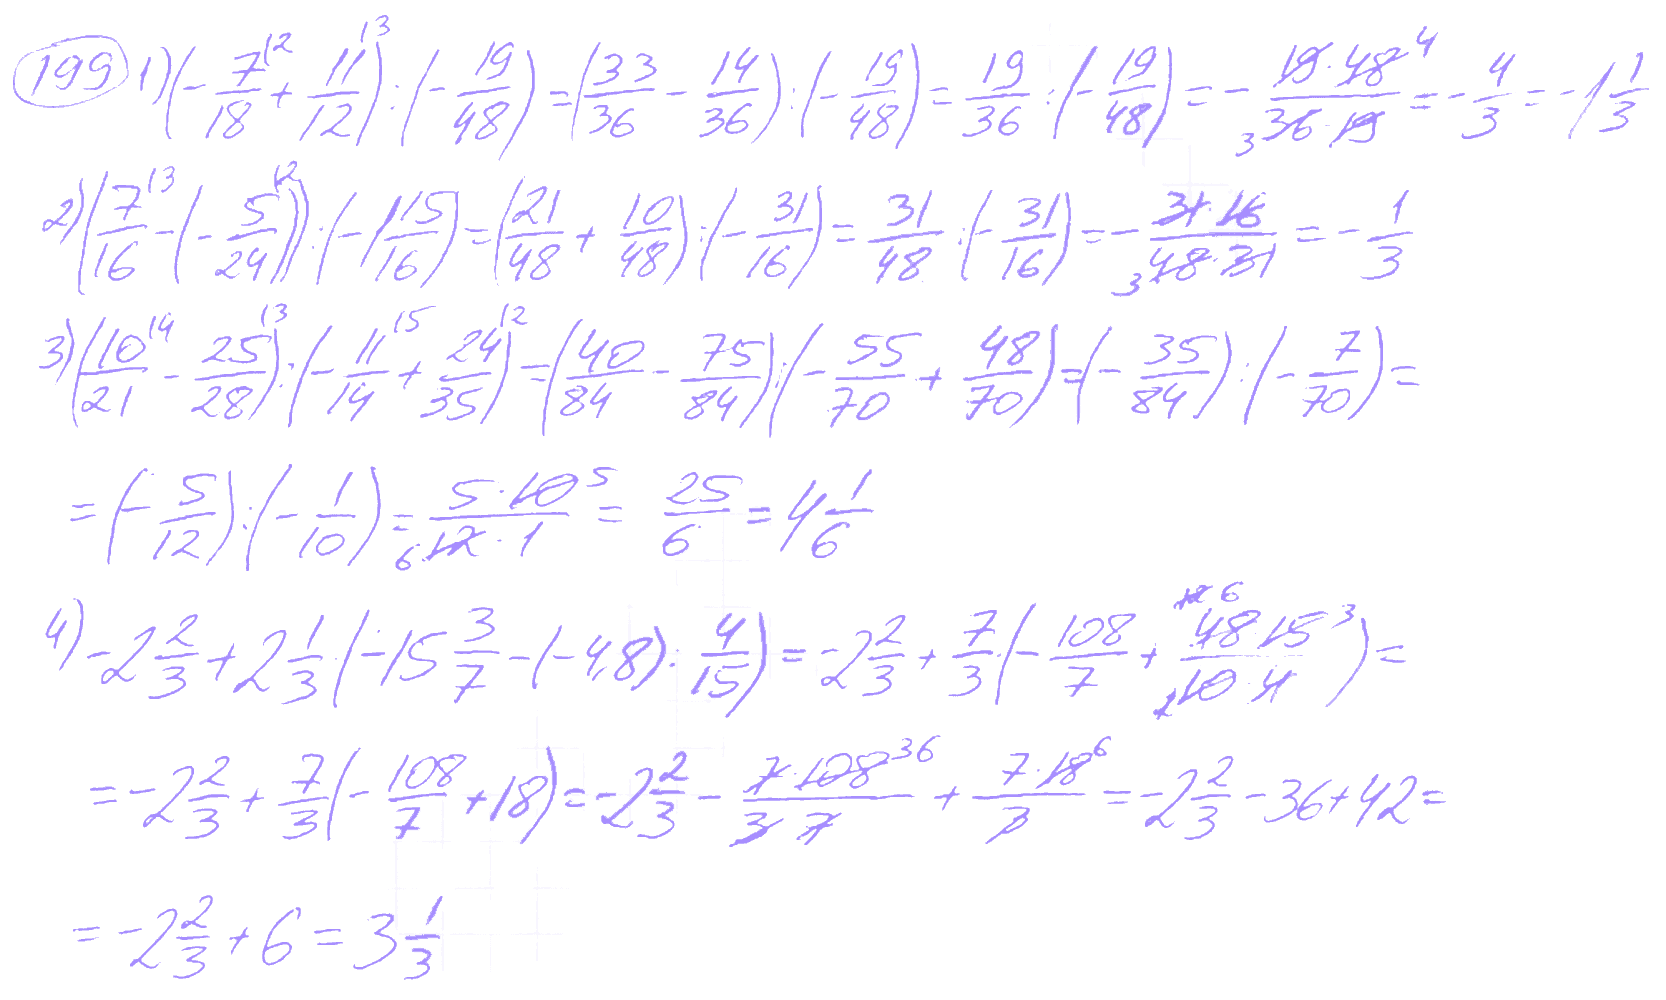 199 1) (-7/18 |2 + 11/12 |3) : (-19/48) = (33/36 - 14/36) : (-19/48) = 19/36 : (-19/48) = - 19·48 4 / 3 36·19 = -4/3 = -1 1/3
2) (7/16 |3 - (-5/24 |2)) : (-1 15/16) = (21/48 + 10/48) : (-31/16) = 31/48 : (-31/16) = - 31·16 / 3 48·31 = -1/3
3) (10/21 |4 - 25/28 |3) : (-11/14 |5 + 24/35 |2) = (40/84 - 75/84) : (-55/70 + 48/70) = (-35/84) : (-7/70) =
= (-5/12) : (-1/10) = 5·10 5 / 6 12·1 = 25/6 = 4 1/6
4) -2 2/3 + 2 1/3 (-15 3/7 - (-4,8) : 4/15) = -2 2/3 + 7/3 · (-108/7 + 12 6 48·15 3 / 2 10·4) =
= -2 2/3 + 7/3 (-108/7 + 18) = -2 2/3 - 7·108 36 / 3·7 + 7·18 6 / 3 = -2 2/3 - 36 + 42 =
= -2 2/3 + 6 = 3 1/3